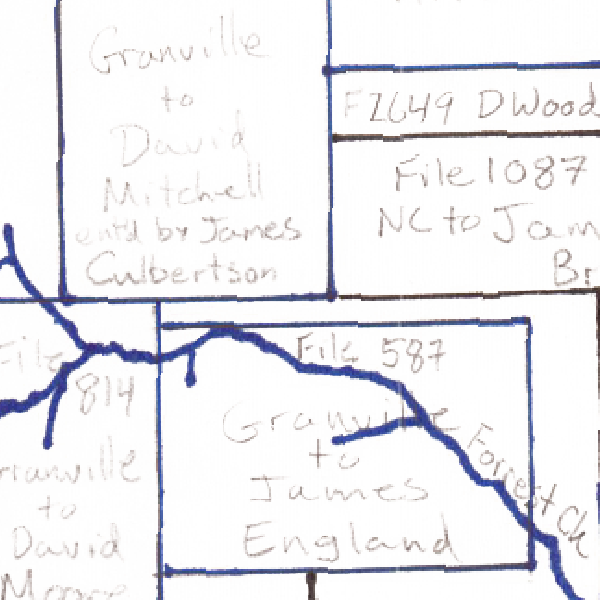 Granville
to
David
Mitchell
entd by James
Culbertson
F2649 DWood
File 1087
NC to Jam
Br
File
814
Granville
to
David
Moore
File 587
Granville
to
James
England
Forrest Ck